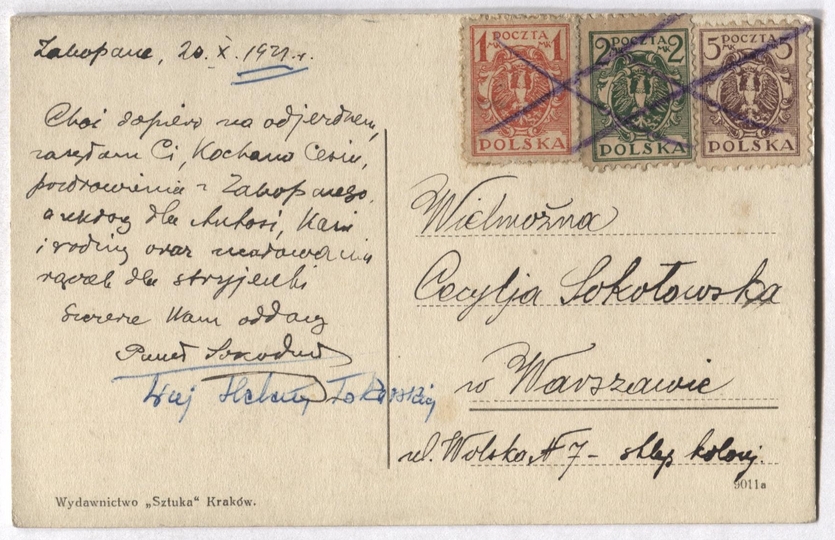 Zakopane, 20. X. 1921 r.
Choć dopiero na odjezdnem,
zasyłam Ci, Kochana Cesiu,
pozdrowienia z Zakopanego,
a ukłony dla Antosi, Kani
i rodziny oraz ucałowania
rączek dla stryjenki
Szczerze Wam oddany
Paweł
Heleny
1 POCZTA 1
MK MK
POLSKA
2 POCZTA 2
MK MK
POLSKA
5 POCZTA 5
MK MK
POLSKA
Wielmożna
Cecylja Sokołowska
w Warszawie
ul. Wolska N 7 - sklep kolonj.
Wydawnictwo „Sztuka" Kraków.
9011a